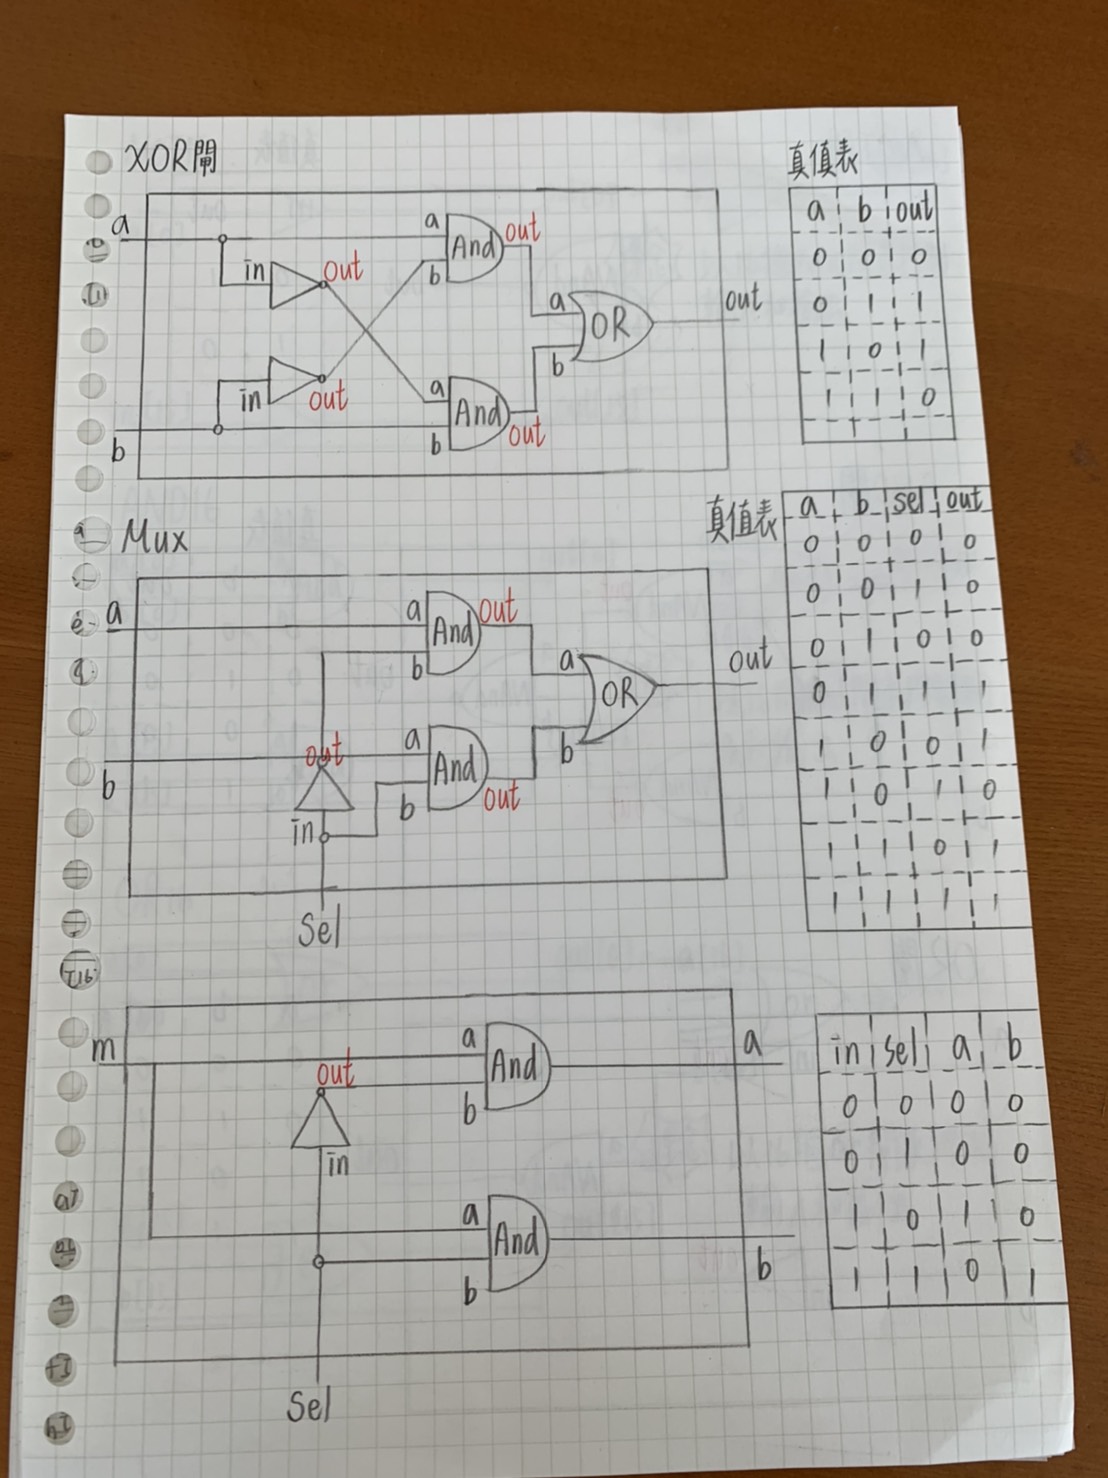 XOR閘
a
a
And
out
b
in
out
in
out
a
And
b
out
b
a
OR
b
out
真值表
a b out
0 0 0
0 1 1
1 0 1
1 1 0
Mux
a
a
And
out
b
out
b
a
And
b
out
in
Sel
a
OR
b
out
真值表
a b sel out
0 0 0 0
0 0 1 0
0 1 0 0
0 1 1 1
1 0 0 1
1 0 1 0
1 1 0 1
1 1 1 1
m
a
And
a
out
b
in
a
And
b
b
Sel
in sel a b
0 0 0 0
0 1 0 0
1 0 1 0
1 1 0 1